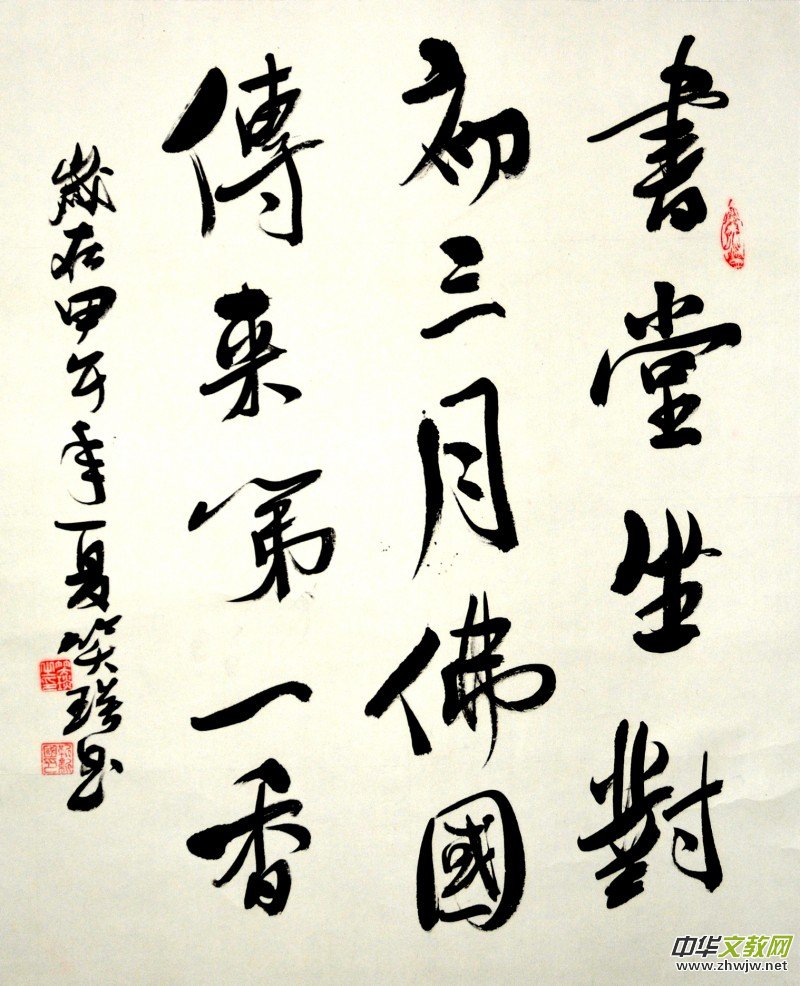 書堂坐對
初三月佛國
傳来第一香
歲在甲午年夏笑书
中华文教网
www.zhwjw.net